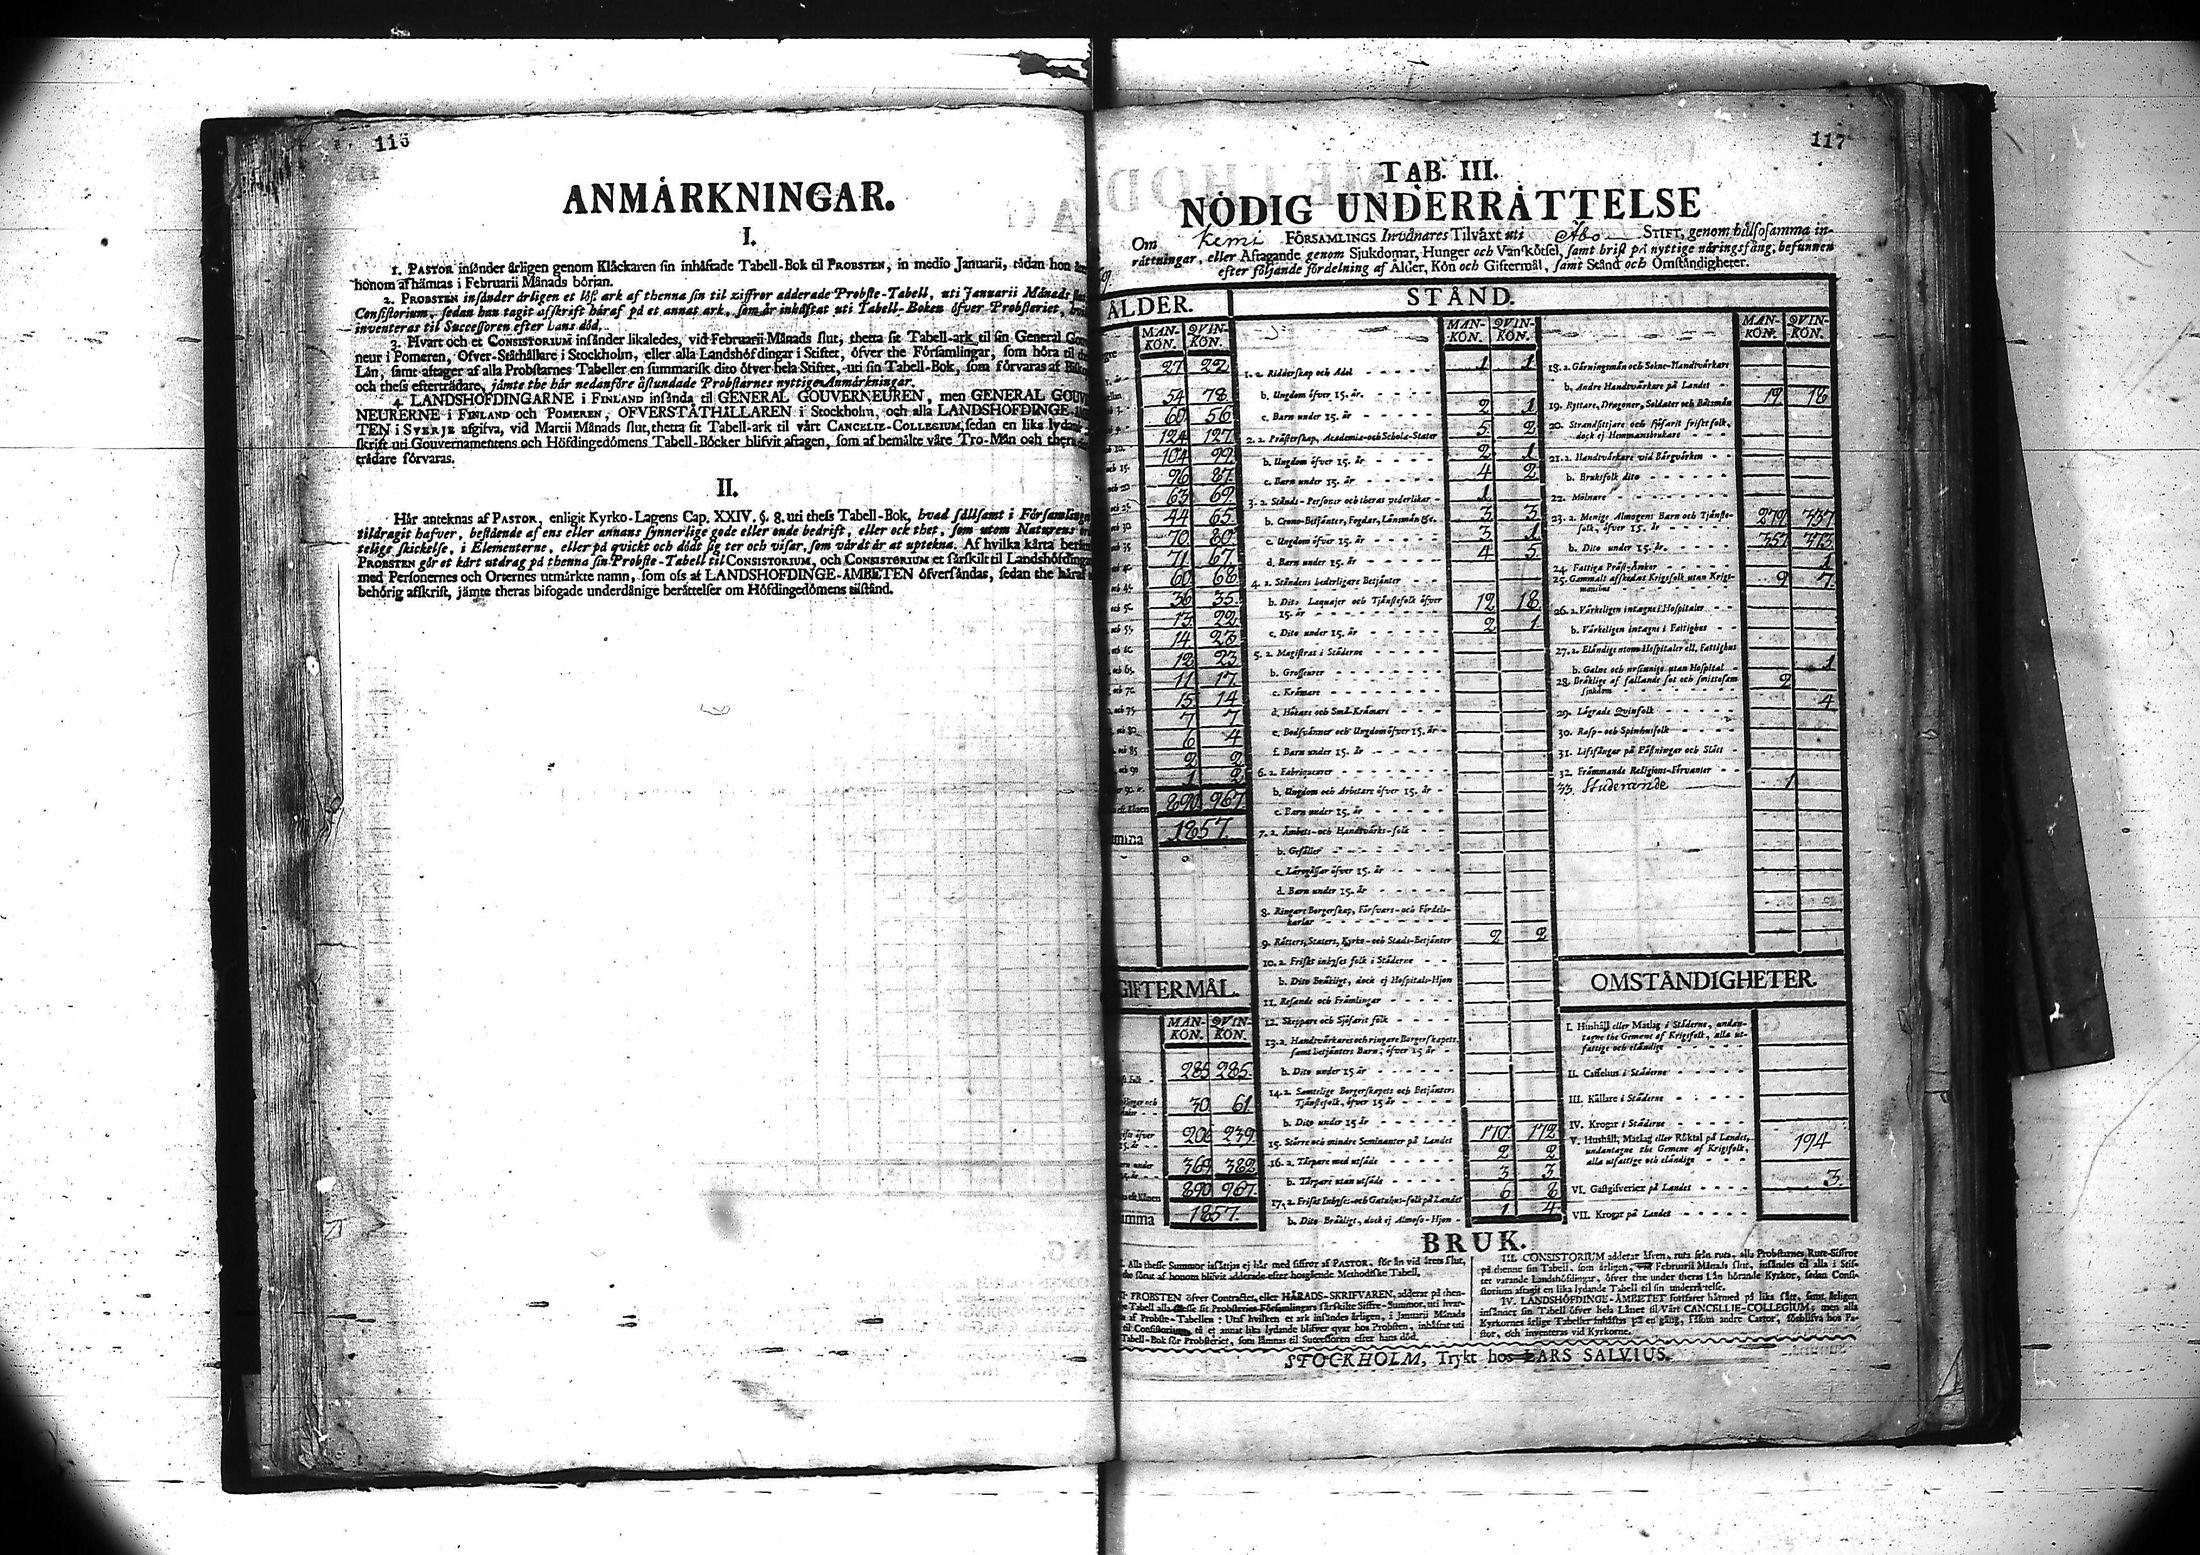 116
ANMÄRKNINGAR.
I.
1. PASTOR insänder årligen genom Klåckaren sin inhäftade Tabell-Bok til PROBSTEN, in medio Januarii, sådan hon
honom afhämtas i Februarii Månads början.
2. PROBSTEN insänder årligen et löst ark af thenna sin til ziffror adderade Probste-Tabell, uti Januarii Månads
Consistorium, sedan han tagit afskrift häraf på et annat ark, som är inhäftat uti Tabell-Boken öfver Probsteriet,
inventeras til Successoren efter hans död.
3. Hvart och et CONSISTORIUM insänder likaledes, vid Februarii Månads slut, thetta sit Tabell-ark til sin General
neur i Pomeren, Öfver-Ståthållare i Stockholm, eller alla Landshöfdingar i Stiftet, öfver the Församlingar, som höra til
Län, samt aftager af alla Probstarnes Tabeller en summarisk dito öfver hela Stiftet, uti sin Tabell-Bok, som förvaras af
och thess efterträdare, jämte the här nedanföre åstundade Probstarnes nyttige Anmärkningar.
4. LANDSHÖFDINGARNE i FINLAND insända til GENERAL GOUVERNEUREN, men GENERAL
NEURERNE i FINLAND och POMEREN, ÖFVERSTÅTHÅLLAREN i Stockholm, och alla LANDSHÖFDINGE
TEN i SVERJE afgifva, vid Martii Månads slut, thetta sit Tabell-ark til vårt CANCELIE-COLLEGIUM, sedan en lika
skrift uti Gouvernamentens och Höfdingedömens Tabell-Böcker blifvit aftagen, som af bemälte våre Tro-Män och
trädare förvaras.
II.
Här anteknas af PASTOR, enligit Kyrko-Lagens Cap. XXIV. §. 8. uti thess Tabell-Bok, hvad sällsamt i
tildragit hafver, bestående af ens eller annans synnerlige gode eller onde bedrift, eller ock thet, som utom Naturens
telige skickelse, i Elementerne, eller på quickt och dödt sig ter och visar, som värdt är at uptekna. Af hvilka korta
PROBSTEN gör et kort utdrag på thenna sin Probste-Tabell til CONSISTORIUM, och CONSISTORIUM et särskilt til
med Personernes och Orternes utmärkte namn, som oss af LANDSHÖFDINGE-ÄMBETEN öfversändas, sedan the häraf
behörig afskrift, jämte theras bifogade underdånige berättelser om Höfdingedömens tilstånd.
117
TAB. III.
NÖDIG UNDERRÄTTELSE
Om Kemi FÖRSAMLINGS Invånares Tilväxt uti Åbo STIFT, genom hälsosamma in-
rättningar, eller Aftagande genom Sjukdomar, Hunger och Vanskötsel, samt brist på nyttige näringsfång, befunnen
efter följande fördelning af Ålder, Kön och Giftermål, samt Stånd och Omständigheter.
ÅLDER. STÅND.
MAN-KÖN. QVIN-KÖN.
27 22
54 78
60 56
124 127
104 99
96 87
63 69
44 65
70 80
71 67
60 68
36 35
13 22
14 23
12 23
11 17
15 14
7 7
6 4
2 2
1 2
890 967
1857.
GIFTERMÅL.
MAN-KÖN. QVIN-KÖN.
285 285
30 61
206 239
369 382
890 967
1857.
MAN-KÖN. QVIN-KÖN.
1. a. Ridderskap och Adel 1 1
b. Ungdom öfver 15. år
c. Barn under 15. år 2 1
2. a. Prästerskap, Academiæ- och Schola-Stater 5 2
b. Ungdom öfver 15. år 2 1
c. Barn under 15. år 4 2
3. a. Stånds-Personer och theras vederlikar 1
b. Crono-Betjänter, Fogdar, Länsmän &c. 3 3
c. Ungdom öfver 15. år 3 1
d. Barn under 15. år 4 5
4. a. Ståndens hederligare Betjänter
b. Dito Laquajer och Tjänstefolk öfver
15. år 12 18
c. Dito under 15. år 2 1
5. a. Magistrat i Städerne
b. Grosseurer
c. Krämare
d. Hökare och Små-Krämare
e. Bodsvänner och Ungdom öfver 15. år
f. Barn under 15. år
6. a. Fabriqueurer
b. Ungdom och Arbetare öfver 15. år
c. Barn under 15. år
7. a. Ämbets- och Handtvärks-folk
b. Gesäller
c. Lärogåssar öfver 15. år
d. Barn under 15. år
8. Ringare Borgerskap, Försvars- och Fördels-
karlar
9. Rätters, Staters, Kyrko- och Stads-Betjänter 2 2
10. a. Friskt inhyses folk i Städerne
b. Dito Bräkligt, dock ej Hospitals-Hjon
11. Resande och Främlingar
12. Skeppare och Sjöfarit folk
13. a. Handtvärkares och ringare Borgerskapets,
samt betjänters Barn, öfver 15 år
b. Dito under 15 år
14. a. Samtelige Borgerskapets och Betjänters
Tjänstefolk, öfver 15 år
b. Dito under 15 år
15. Större och mindre Hemmanter på Landet 170 172
16. a. Torpare med utsäde 2 2
b. Torpare utan utsäde 3 3
17. a. Friskt Inhyses- och Gatuhus-folk på Landet 6 8
b. Dito Bräkligt, dock ej Almoso-Hjon 1 4
MAN-KÖN. QVIN-KÖN.
18. a. Gärningsmän och Sokne-Handtvärkare
b. Andre Handtvärkare på Landet
19. Ryttare, Dragoner, Soldater och Båtsmän 19 18
20. Strandsittjare och sjöfarit friskt folk,
dock ej Hemmansbrukare
21. a. Handtvärkare vid Bärgvärken
b. Bruksfolk dito
22. Mölnare
23. a. Menige Almogens Barn och Tjänste-
folk, öfver 15. år 279 337
b. Dito under 15. år 357 373
24. Fattiga Präst-Änkor 1
25. Gammalt afskedat Krigsfolk utan Krigs-
mansbus 9 7
26. a. Värkeligen intagne i Hospitaler
b. Värkeligen intagne i Fattighus
27. a. Eländige utom Hospitaler ell. Fattighus
b. Galne och ursinnige utan Hospital 1
28. Bräklige af fallande sot och smittosam
sjukdom 2
29. Lägrade Qvinfolk 4
30. Rasp- och Spinhusfolk
31. Lifsfångar på Fästningar och Slått
32. Främmande Religions-Förvanter
33. Studerande 1
OMSTÄNDIGHETER.
I. Hushåll eller Matlag i Städerne, undan-
tagne the Gemene af Krigsfolk, alla ut-
fattige och eländige
II. Caffehus i Städerne
III. Källare i Städerne
IV. Krogar i Städerne
V. Hushåll, Matlag eller Röktal på Landet,
undantagne the Gemene af Krigsfolk,
alla utfattige och eländige 194
VI. Gästgifverier på Landet 3
VII. Krogar på Landet
BRUK.
Alla thesse Summor insättjas ej här med siffror af PASTOR, för än vid årets slut,
the förut af honom blifvit adderade efter hosgående Methodiske Tabell.
PROBSTEN öfver Contractet, eller HÄRADS-SKRIFVAREN, adderar på then-
ne Tabell alla thesse sit Probsteries Församlingars särskilte Siffre-Summor, uti hvar-
af Probste-Tabellen: Utaf hvilken et ark insändes årligen, i Januarii Månads
til Consistorium, tå et annat lika lydande blifver qvar hos Probsten, inhäftat uti
Tabell-Bok för Probsteriet, som lämnas til Successoren efter hans död.
III. CONSISTORIUM adderar äfven, ruta från ruta, alla Probstarnes Rute-Siffror
på thenne sin Tabell, som årligen, vid Februarii Månads slut, insändes til alla i Stif-
tet varande Landshöfdingar, öfver the under theras Län hörande Kyrkor, sedan Consi-
storium aftagit en lika lydande Tabell til sin underrättelse.
IV. LANDSHÖFDINGE-ÄMBETET fortfarer härmed på lika sätt, samt årligen
insänder sin Tabell öfver hela Länet til Vårt CANCELLIE-COLLEGIUM; men alla
Kyrkornes årlige Tabeller inhäftas på en gång, såsom andre Cartor, förblifva hos Pa-
stor, och inventeras vid Kyrkorne.
STOCKHOLM, Trykt hos LARS SALVIUS.